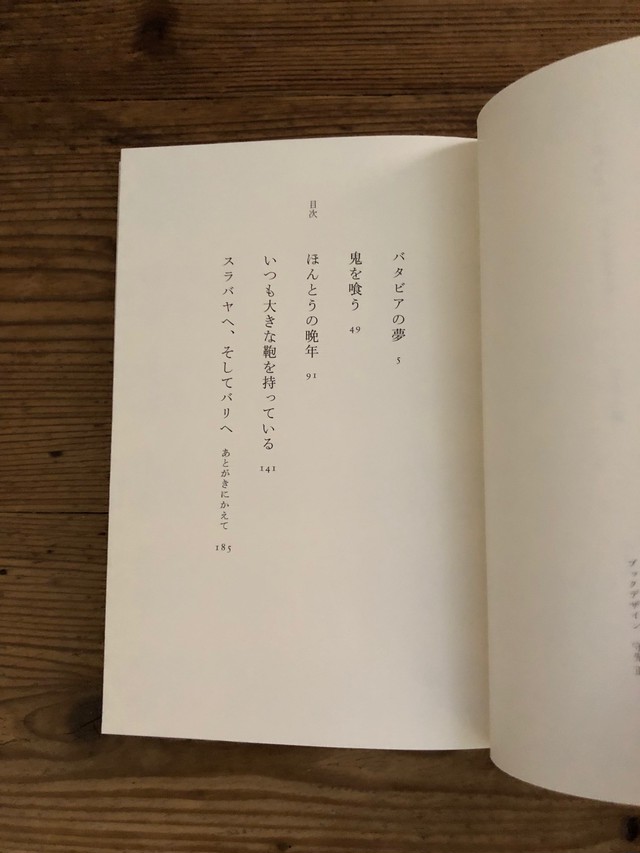 目次
バタビアの夢 5
鬼を喰う 49
ほんとうの晩年 91
いつも大きな鞄を持っている 141
スラバヤへ、そしてバリへ あとがきにかえて 185
ブックデザイン